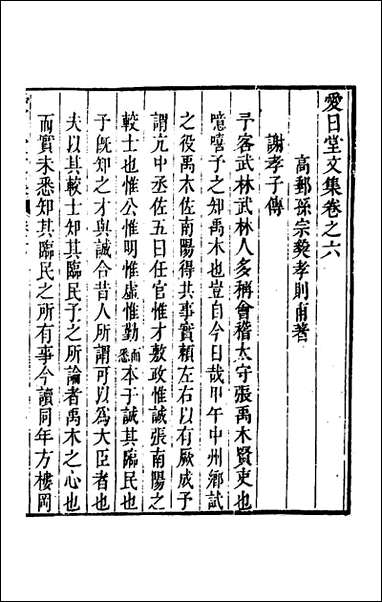 愛日堂文集卷之六
高郵孫宗彝孝則甫著
謝孝子傳
予客武林武林人多稱會稽太守張禹木賢吏也
噫嘻予之知禹木也豈自今日哉甲午中州鄉試
之役禹木佐南陽得共事實頼左右以有厥成予
謂亢中丞佐五日任官惟才敷政惟誠張南陽之
較士也惟公惟明惟虛惟勤而悉本于誠其臨民也
予旣知之才與誠合昔人所謂可以為大臣者也
夫以其較士知其臨民予之所論者禹木之心也
而實未悉知其臨民之所有事今讀同年方樓岡